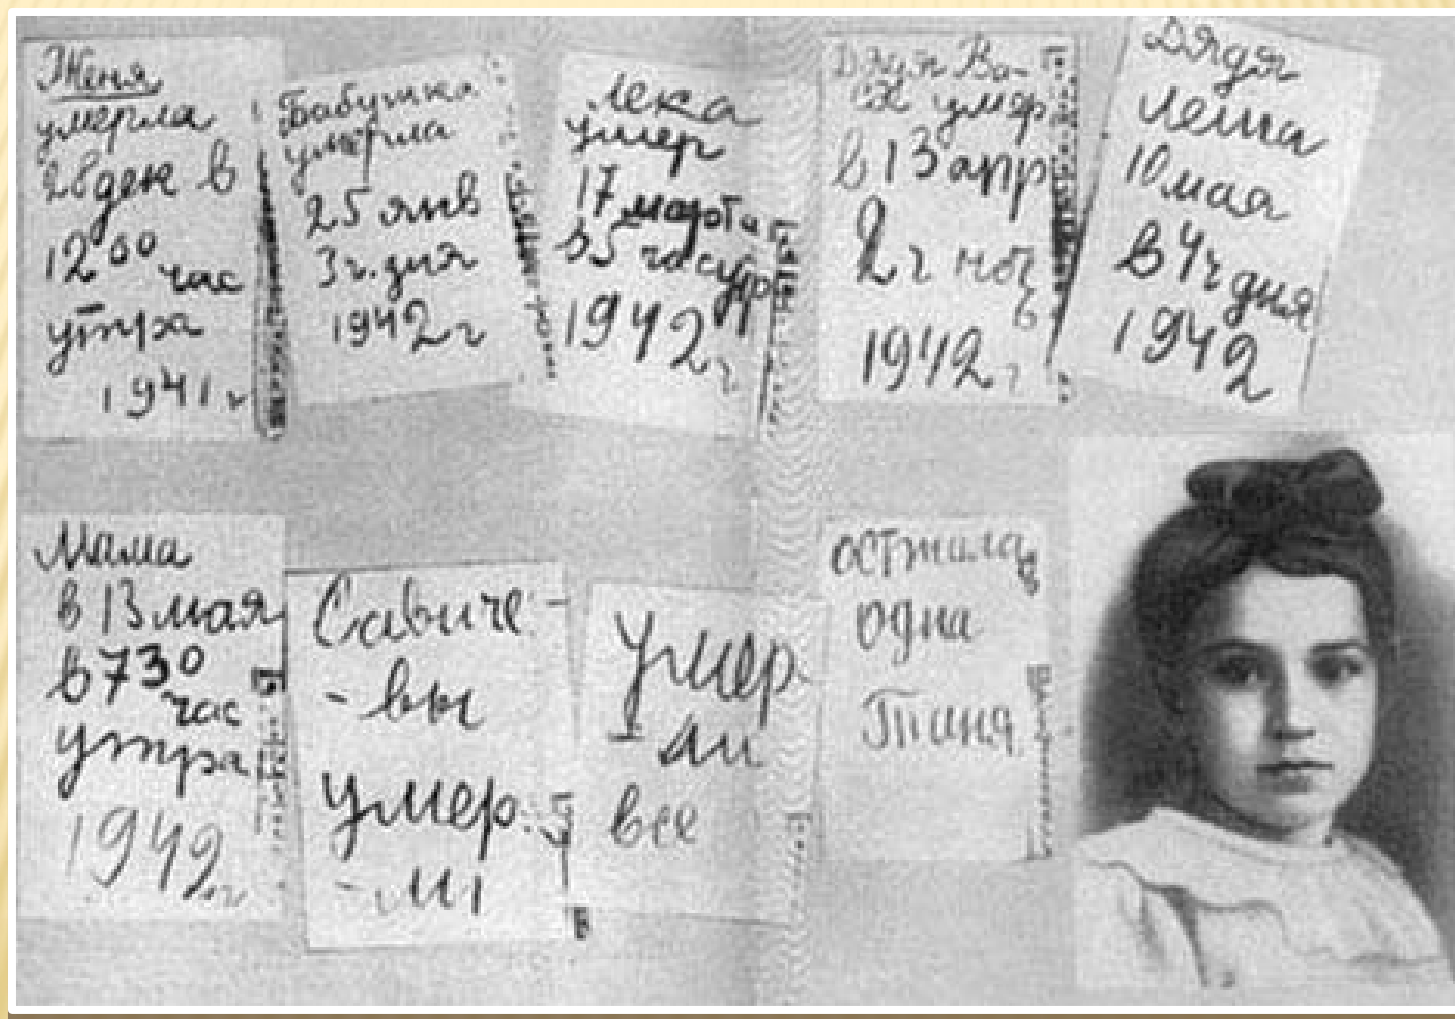 Женя
умерла
28 дек в
12 00
час
утра
1941 г
Бабушка
умерла
25 янв
3 ч. дня
1942 г
Лека
умер
17 марта
в 5 часутр
1942 г
Дядя Ва-
ся умер
в 13 апр
2 ч ноч
ь
1942 г
Дядя
Леша
10 мая
в 4 ч дня
1942
Мама
в 13 мая
в 730
час
утра
1942 г
Савиче-
-вы
умер
-ли
Умер
-ли
все
осталась
одна
Таня